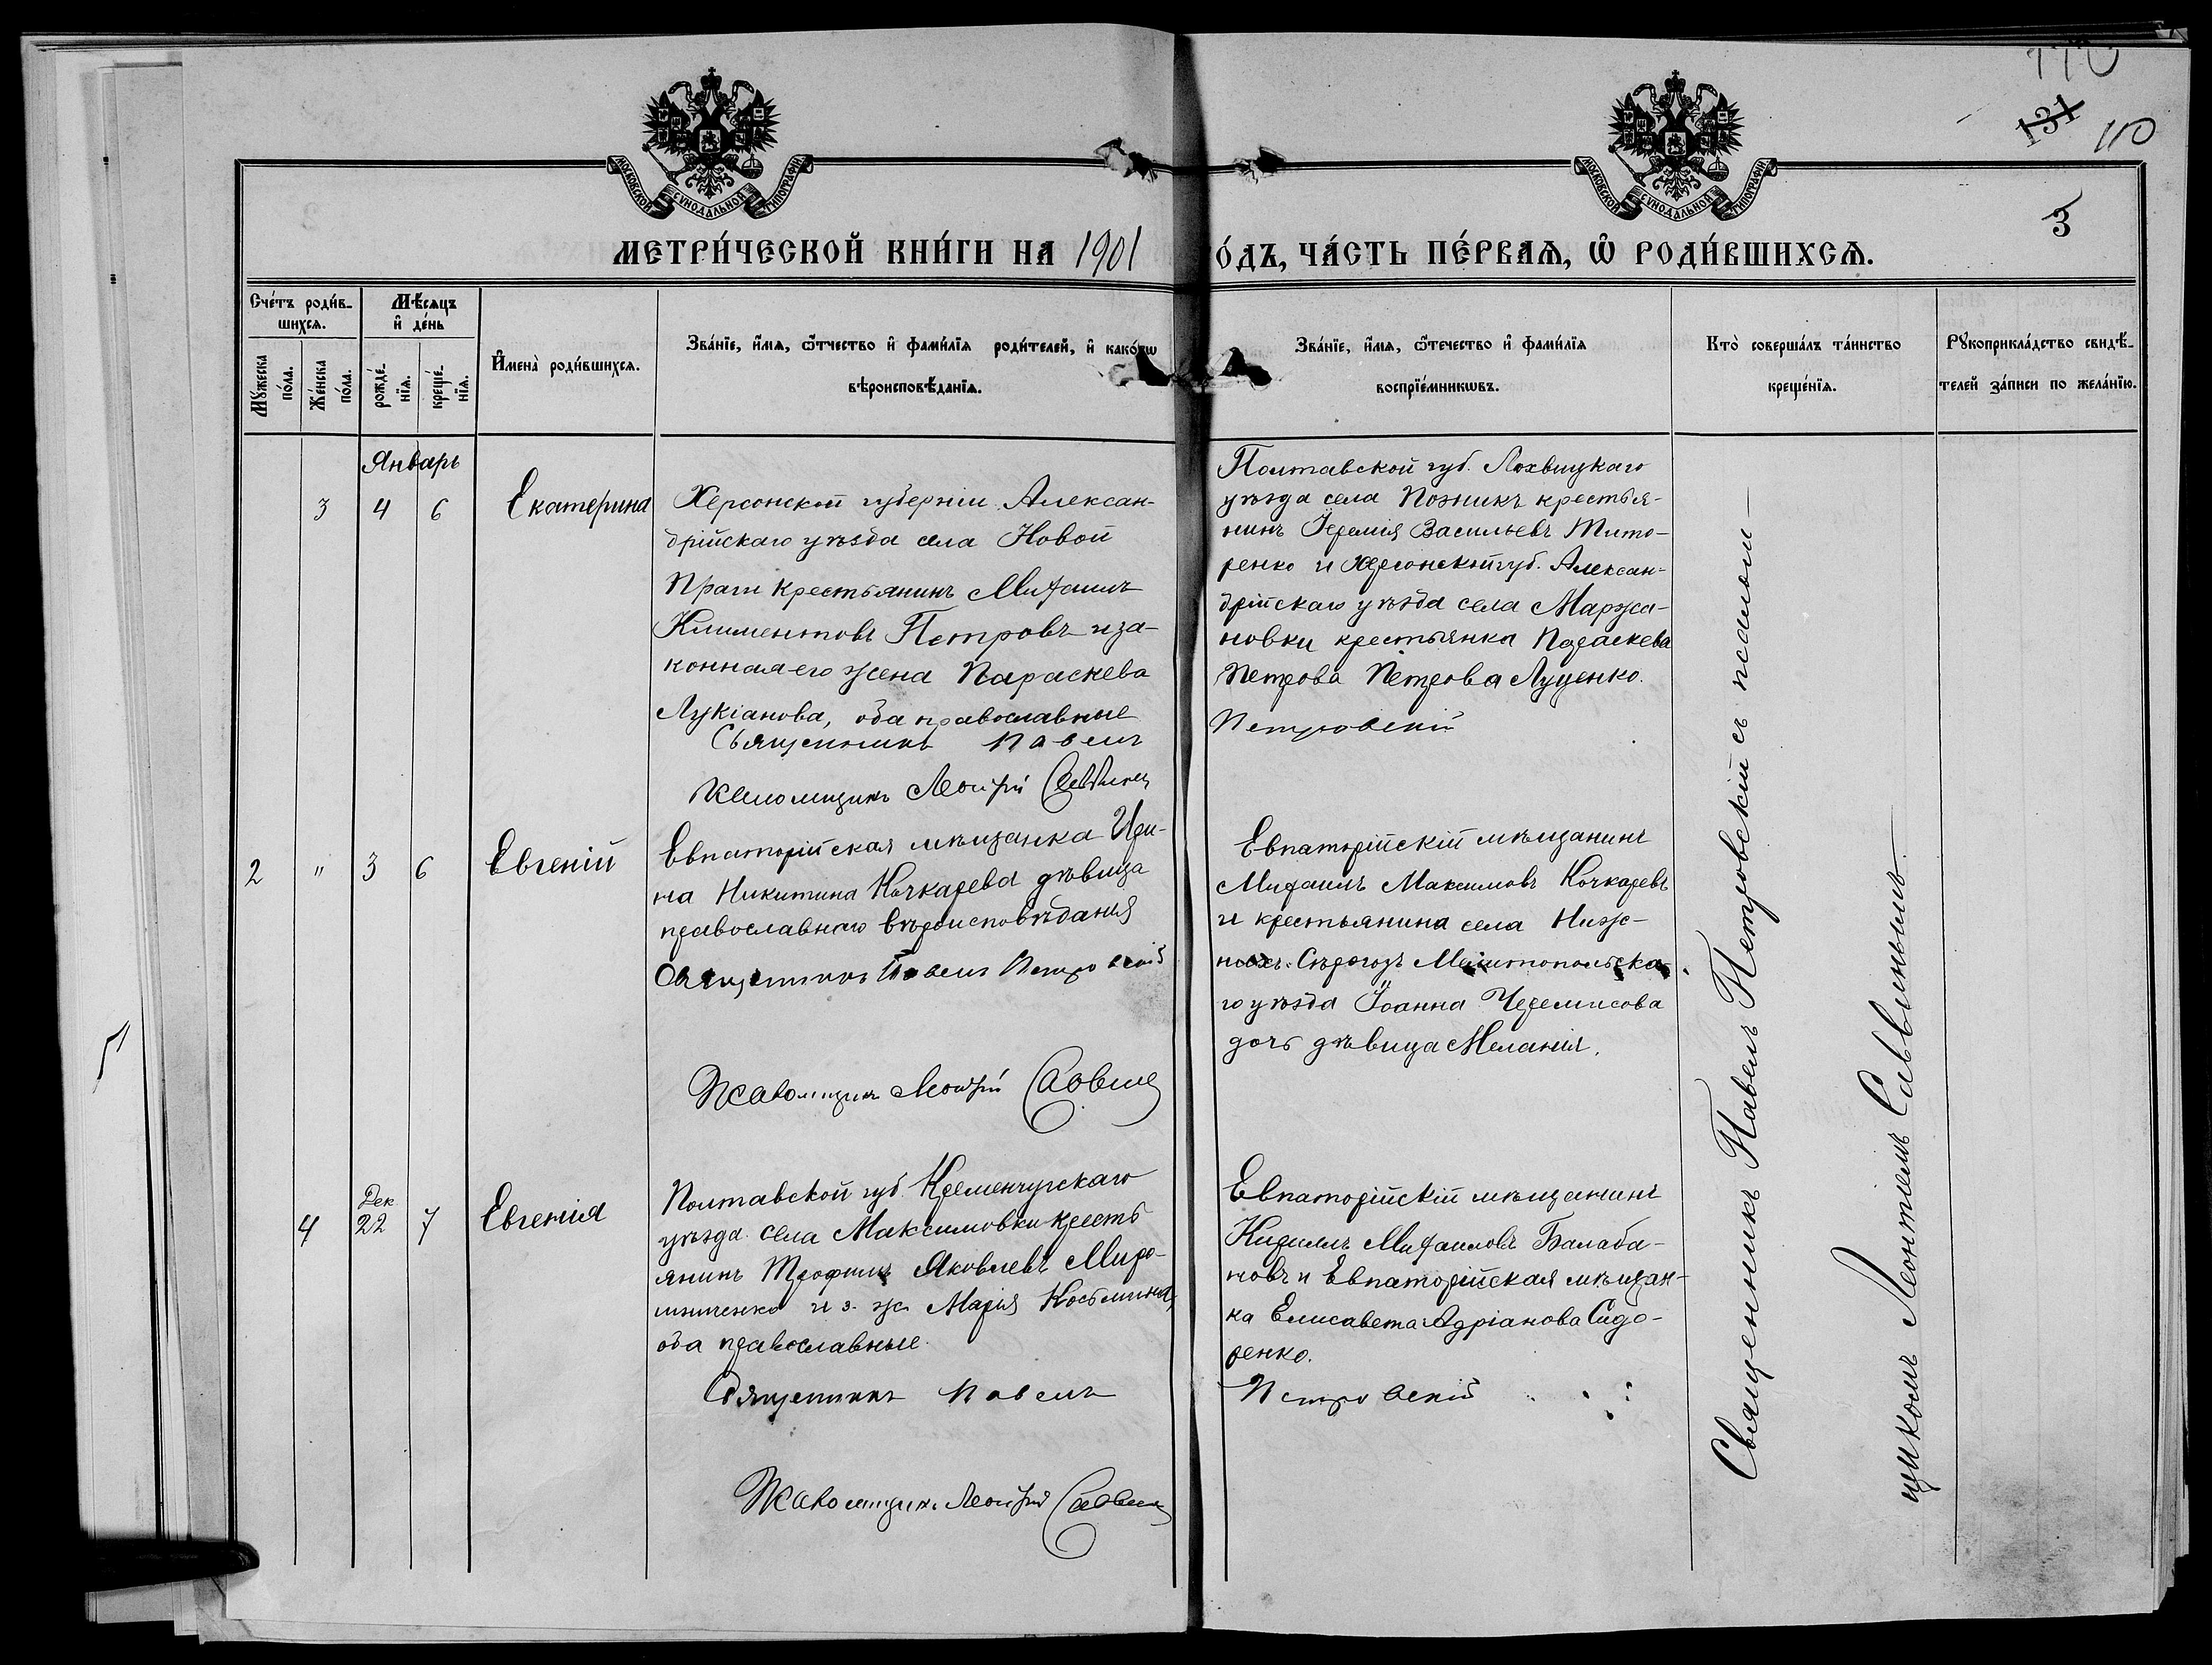 110
131
110
3
МОСКОВСКОЙ СѴНОДАЛЬНОЙ ТИПОГРАФІИ
МОСКОВСКОЙ СѴНОДАЛЬНОЙ ТИПОГРАФІИ
МЕТРИ́ЧЕСКОЙ КНИ́ГИ НА 1901 О́ДЪ, ЧА́СТЬ ПЕ́РВАѦ, Ѡ҆ РОДИ́ВШИХСѦ.
Сче́тъ роди́в-
шихсѧ.
Мѣ́сѧцъ
и҆ де́нь
Мꙋ́жеска
по́ла.
Же́нска
по́ла.
рожде́-
нїѧ.
креще́-
нїѧ.
И҆мена̀ роди́вшихсѧ.
Зва́нїе, и҆́мѧ, ѻ҆́тчество и҆ фами́лїѧ роди́телей, и҆ како́гѡ
вѣроисповѣ́данїѧ.
Зва́нїе, и҆́мѧ, ѻ҆́течество и҆ фами́лїѧ
воспрїе́мникѡвъ.
Кто̀ соверша́лъ та́инство
креще́нїѧ.
Рꙋкоприкла́дство свидѣ́-
телей за́писи по жела́нїю.
Январь
3 4 6 Екатерина
Херсонской губерніи Алексан-
дрійскаго уѣзда села Новой
Праги крестьянинъ Михаилъ
Климентовъ Петровъ и за-
конная его жена Параскева
Лукіанова, оба православные
Священникъ Павелъ
Псаломщикъ Леонтій Саввинъ
Полтавской губ. Лохвицкаго
уѣзда села Позникъ крестья-
нинъ Іеремія Васильевъ Тито-
ренко и Херсонской губ. Алексан-
дрійскаго уѣзда села Маржа-
новки крестьянка Параскева
Петрова Петрова Луценко.
Петровскій
2 " 3 6 Евгеній
Евпаторійская мѣщанка Ири-
на Никитина Кочкарева дѣвица
православнаго вѣроисповѣданія
Священникъ Павелъ Петровскій
Псаломщикъ Леонтій Саввинъ
Евпаторійскій мѣщанинъ
Михаилъ Максимовъ Кочкаревъ
и крестьянина села Ниж-
нихъ-Сѣрогозъ Мелитопольска-
го уѣзда Іоанна Черемисова
дочь дѣвица Меланія.
4 Дек. 22 7 Евгенія
Полтавской губ. Кременчугскаго
уѣзда села Максимовки кресть
янинъ Трофимъ Яковлевъ Миро-
шниченко и з. ж. Марія Косьмина,
оба православные.
Священникъ Павелъ
Псаломщикъ Леонтій Саввинъ
Евпаторійскій мѣщанинъ
Кириллъ Михаиловъ Балаба-
новъ и Евпаторійская мѣщан-
ка Елисавета Адріанова Сидо-
ренко.
Петровскій
Священникъ Павелъ Петровскій съ псалом-
щикомъ Леонтіемъ Саввинымъ